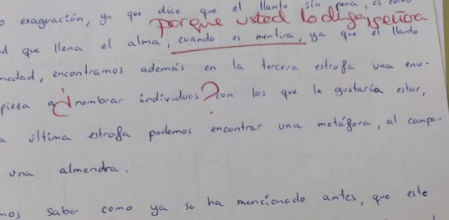 exageración, ya que dice que el llanto sin pena, es como
porque usted lo diga, señora
d que llena el alma, cuando es mentira, ya que el llanto
medad, encontramos además en la tercera estrofa una enu-
pieza a ¿nombrar individuos? con los que le gustaría estar,
a última estrofa podemos encontrar una metáfora, al compa-
una almendra.
mos saber como ya se ha mencionado antes, que este